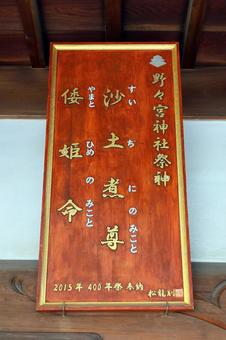 野々宮神社祭神
すいぢにのみこと
沙土煮尊
やまとひめのみこと
倭姫命
2015年 400年祭 奉納